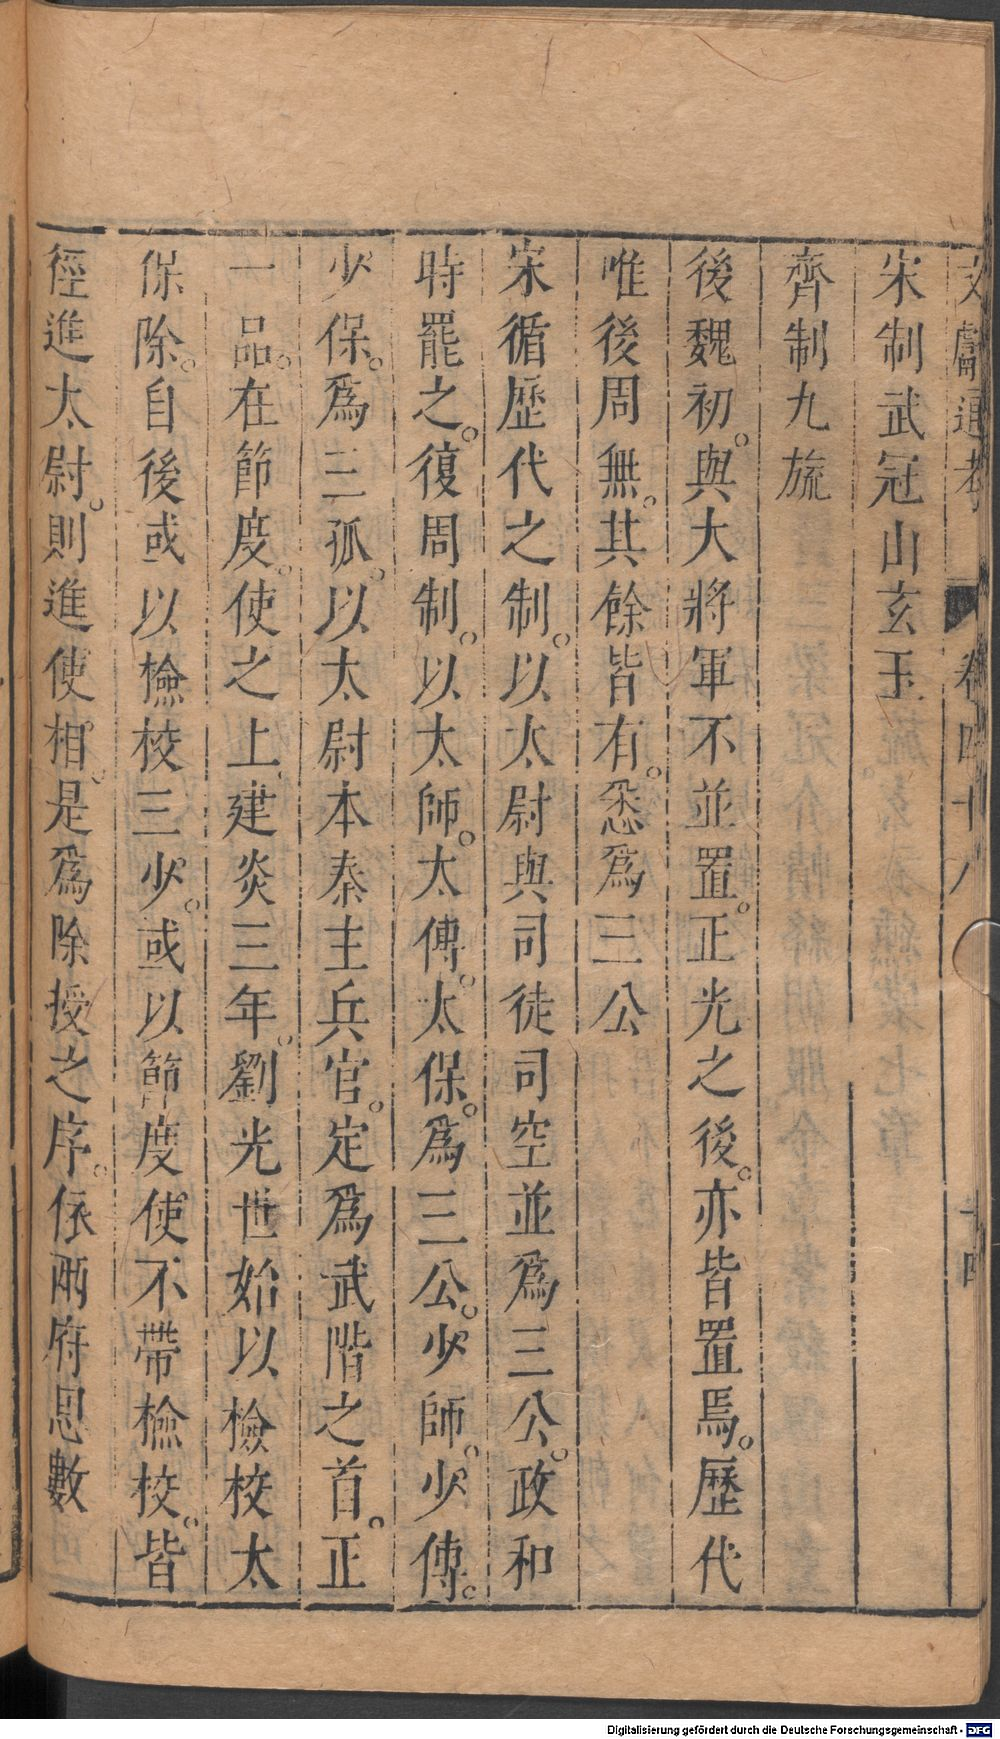 文獻通考 卷四十八 十四
宋制武冠山玄玉
齊制九旒
後魏初。與大將軍不並置。正光之後。亦皆置焉。歷代
唯後周無。其餘皆有。悉為三公
宋循歷代之制。以太尉與司徒司空並為三公。政和
時罷之。復周制。以太師。太傅。太保。為三公。少師。少傅。
少保。為三孤。以太尉本秦主兵官。定為武階之首。正
一品。在節度。使之上建炎三年。劉光世始以檢校太
保除。自後或以檢校三少。或以節度使不帶檢校。皆
徑進太尉。則進使相。是為除授之序。依兩府恩數
Digitalisierung gefördert durch die Deutsche Forschungsgemeinschaft - DFG